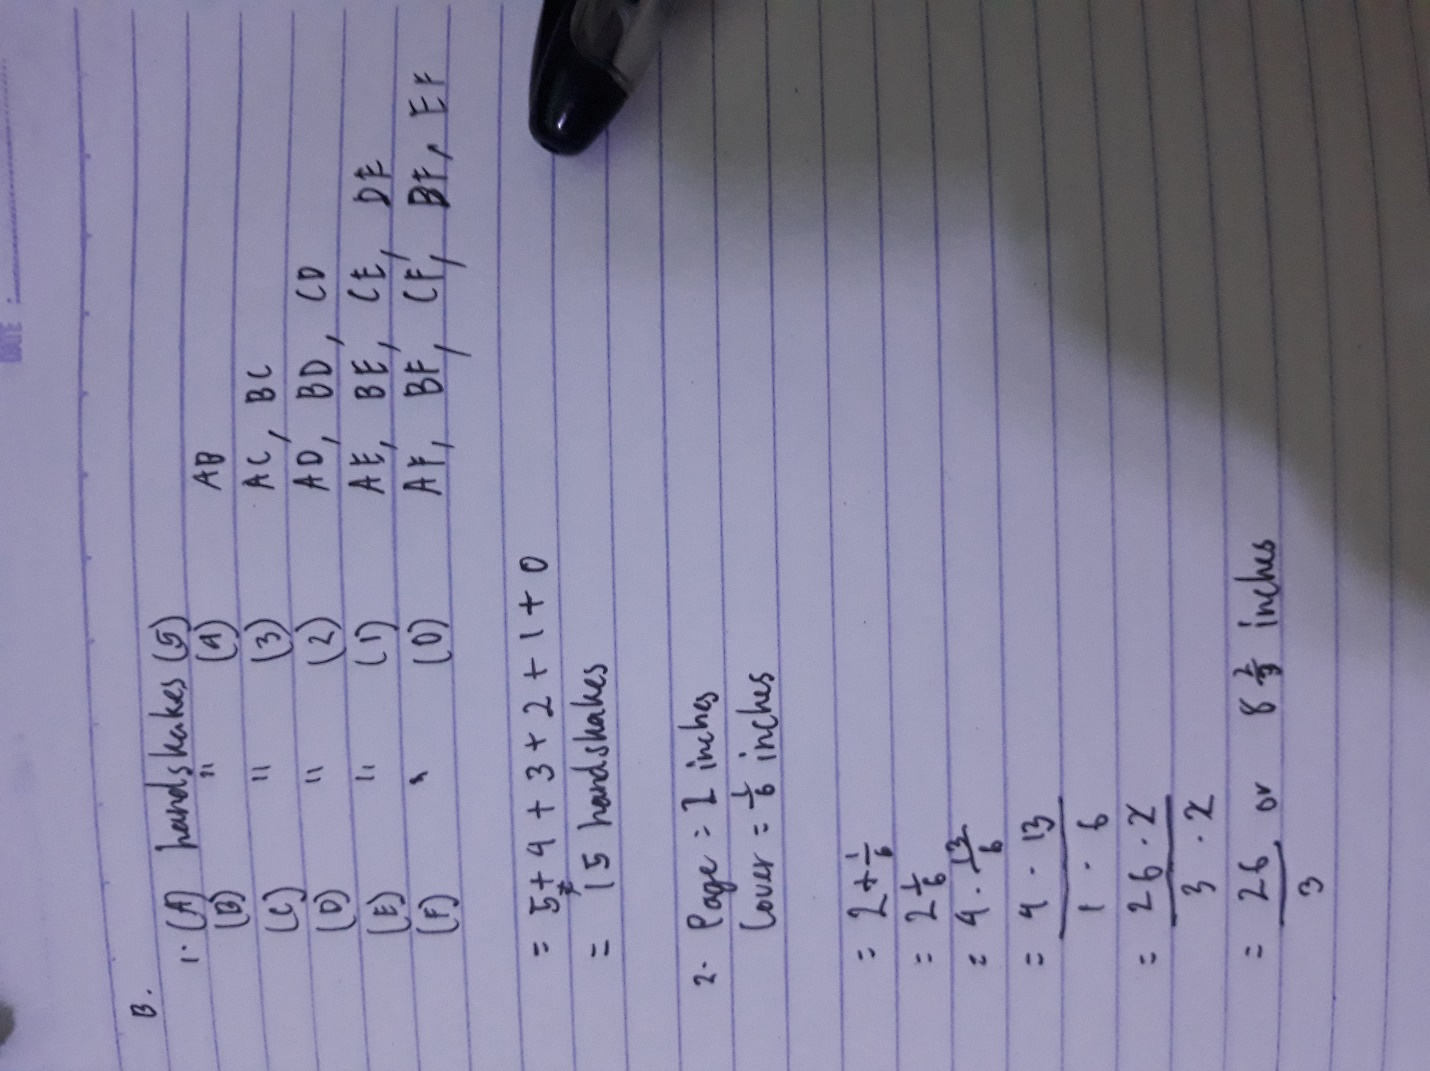 DATE :
B.
1. (A) handshakes (5)
(B) " (4) AB
(C) " (3) AC, BC
(D) " (2) AD, BD, CD
(E) " (1) AE, BE, CE, DE
(F) " (0) AF, BF, CF, DF, EF
= 5+4+3+2+1+0
= 15 handshakes
2. Page = 2 inches
Cover = 1/6 inches
= 2+1/6
= 2 1/6
= 4 · 13/6
= 4 · 13 / 1 · 6
= 26 · 2 / 3 · 2
= 26/3 or 8 2/3 inches